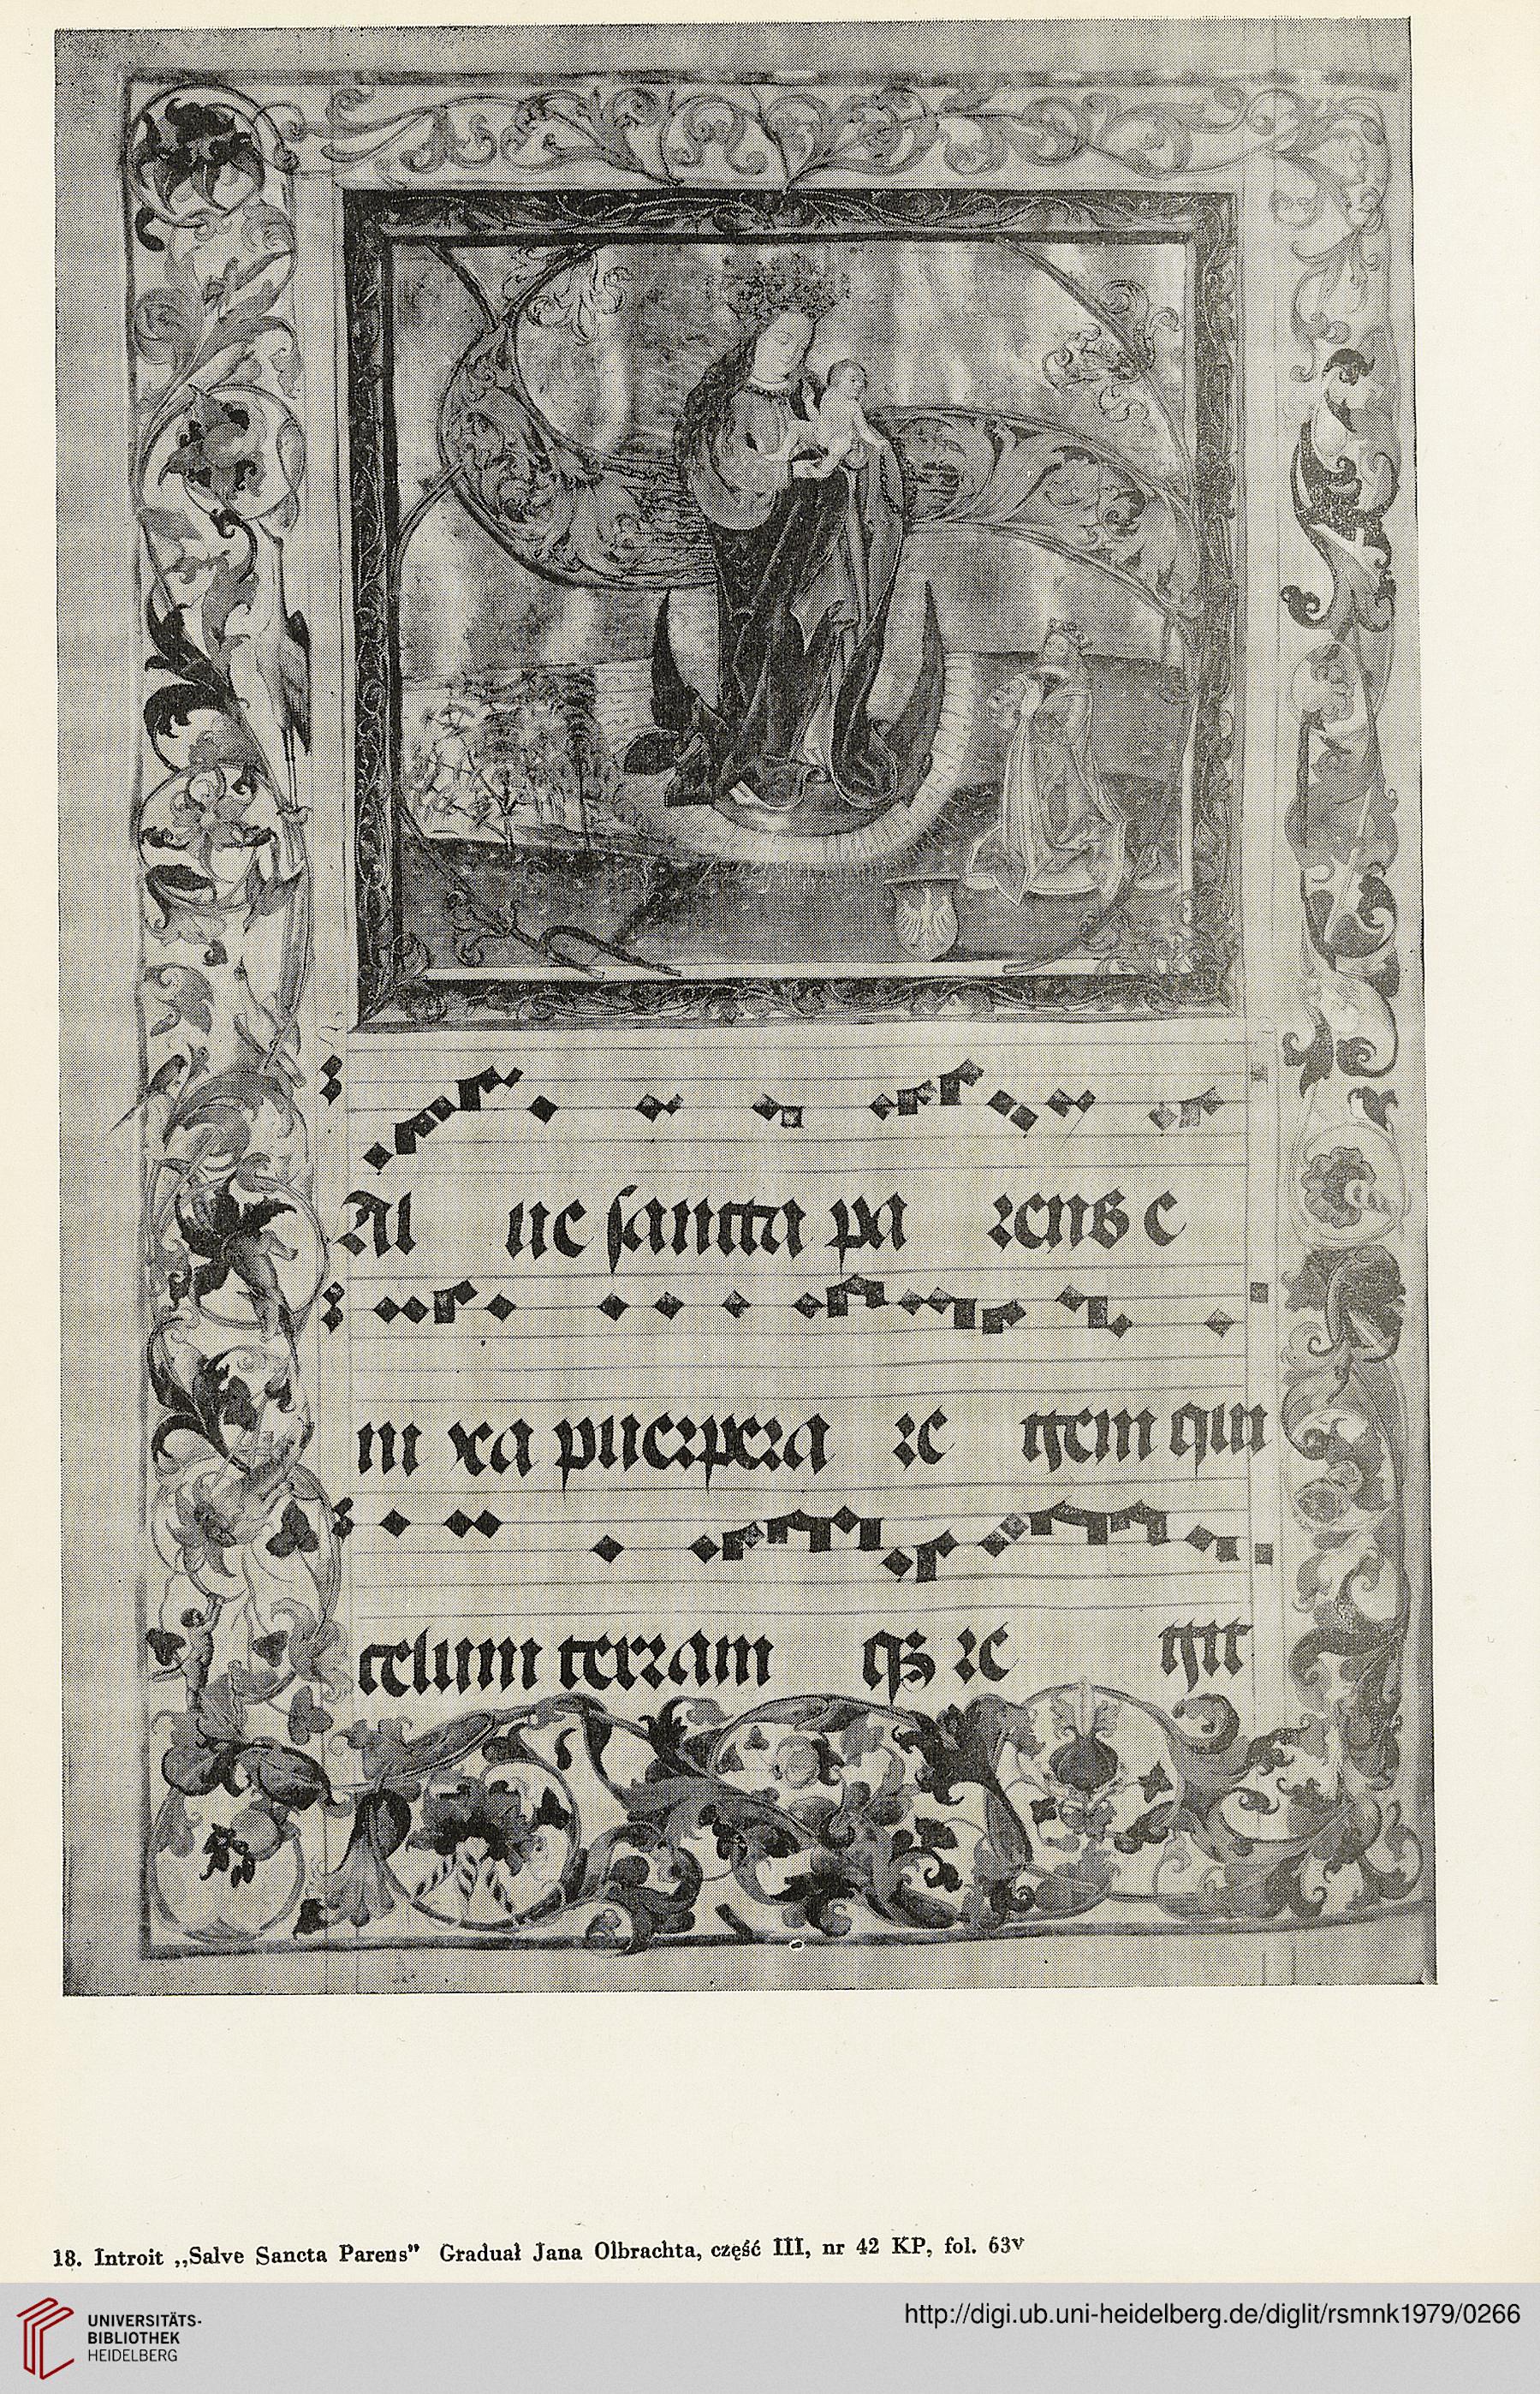 Al ue sancta pa rens e
ni xa puerpera re gem qui
celum terram q3 re git
18. Introit ,,Salve Sancta Parens” Graduał Jana Olbrachta, część III, nr 42 KP, fol. 63v
UNIVERSITÄTS-
BIBLIOTHEK
HEIDELBERG
http://digi.ub.uni-heidelberg.de/diglit/rsmnk1979/0266